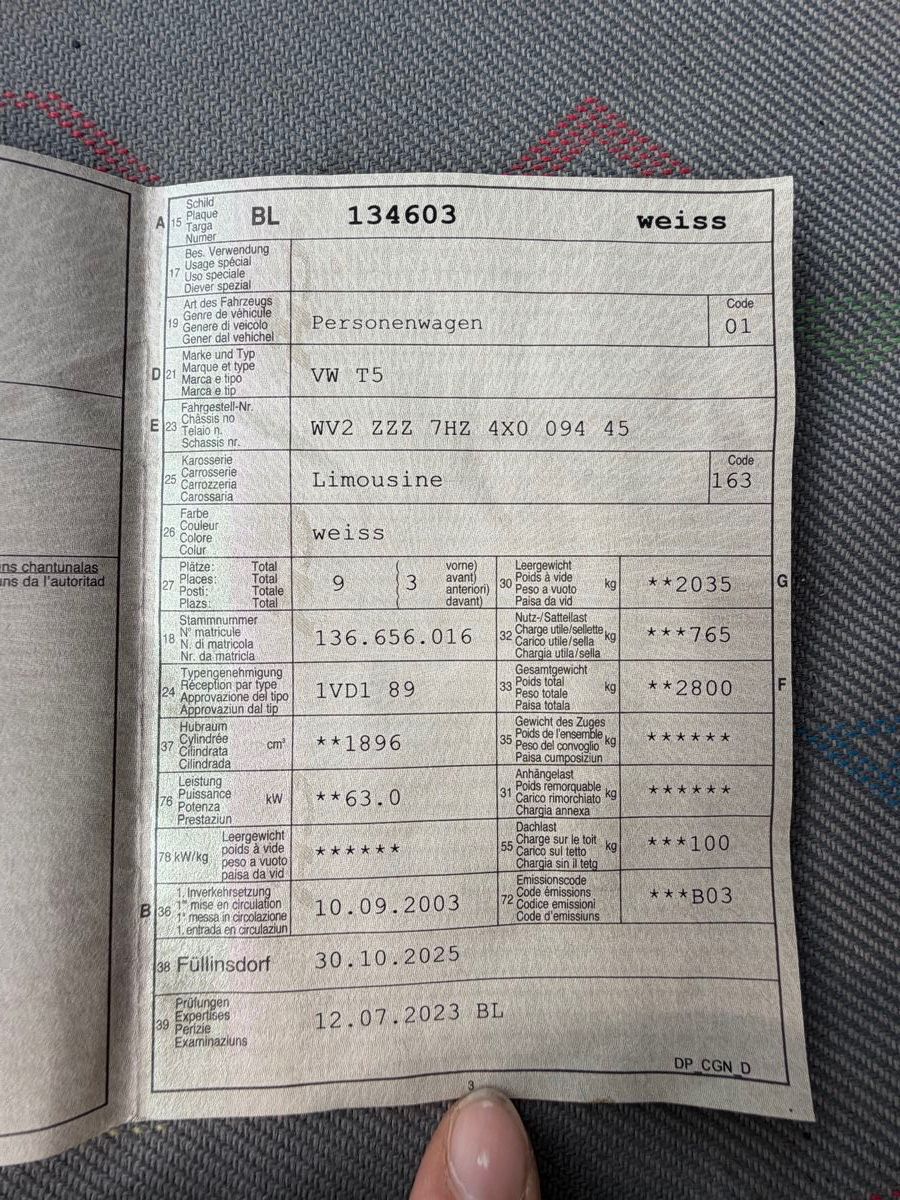 ns chantunalas
uns da l'autoritad
A 15 Schild
Plaque
Targa
Numer
BL 134603 weiss
17 Bes. Verwendung
Usage spécial
Uso speciale
Diever spezial
19 Art des Fahrzeugs
Genre de véhicule
Genere di veicolo
Gener dal vehichel
Personenwagen
Code
01
D 21 Marke und Typ
Marque et type
Marca e tipo
Marca e tip
VW T5
E 23 Fahrgestell-Nr.
Châssis no
Telaio n.
Schassis nr.
WV2 ZZZ 7HZ 4X0 094 45
25 Karosserie
Carrosserie
Carrozzeria
Carossaria
Limousine
Code
163
26 Farbe
Couleur
Colore
Colur
weiss
27 Plätze: Total
Places: Total
Posti: Totale
Plazs: Total
9 ( 3 vorne)
avant)
anteriori)
davant)
30 Leergewicht
Poids à vide
Peso a vuoto
Paisa da vid
kg
**2035
G
18 Stammnummer
N° matricule
N. di matricola
Nr. da matricla
136.656.016
32 Nutz-/Sattellast
Charge utile/sellette
Carico utile/sella
Chargia utila/sella
kg
***765
24 Typengenehmigung
Réception par type
Approvazione del tipo
Approvaziun dal tip
1VD1 89
33 Gesamtgewicht
Poids total
Peso totale
Paisa totala
kg
**2800
F
37 Hubraum
Cylindrée
Cilindrata
Cilindrada
cm³
**1896
35 Gewicht des Zuges
Poids de l'ensemble
Peso del convoglio
Paisa cumposiziun
kg
******
76 Leistung
Puissance
Potenza
Prestaziun
kW
**63.0
31 Anhängelast
Poids remorquable
Carico rimorchiato
Chargia annexa
kg
******
78 kW/kg Leergewicht
poids à vide
peso a vuoto
paisa da vid
******
55 Dachlast
Charge sur le toit
Carico sul tetto
Chargia sin il tetg
kg
***100
B 36 1. Inverkehrsetzung
1re mise en circulation
1a messa in circolazione
1. entrada en circulaziun
10.09.2003
72 Emissionscode
Code émissions
Codice emissioni
Code d'emissiuns
***B03
38 Füllinsdorf 30.10.2025
39 Prüfungen
Expertises
Perizie
Examinaziuns
12.07.2023 BL
DP_CGN_D
3